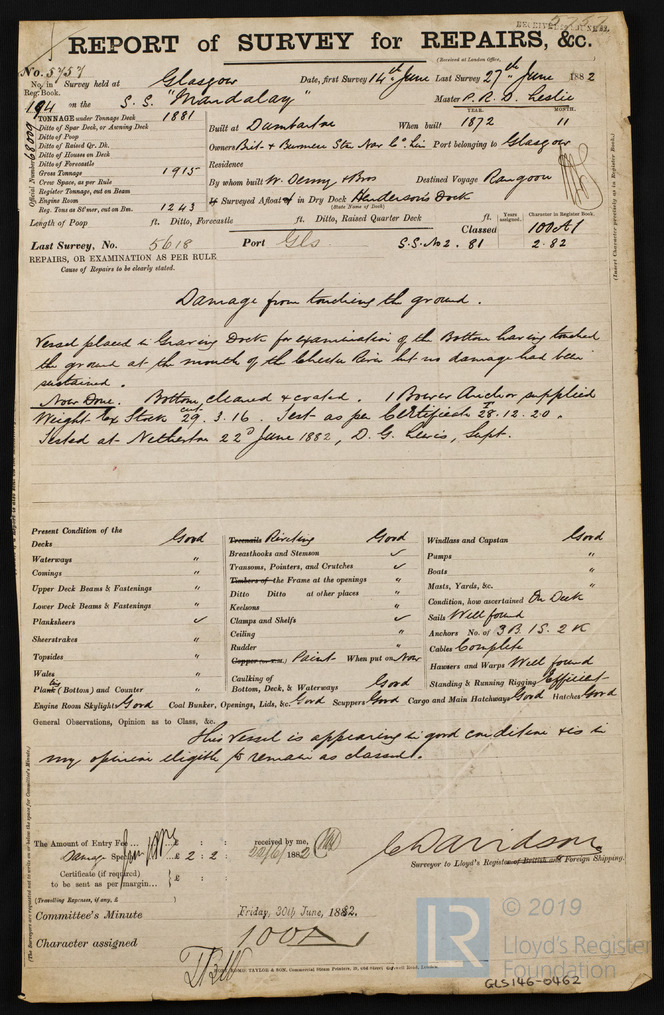 REPORT of SURVEY for REPAIRS, &c.
(Received at London Office,
No. 5757
No. in Reg. Book. Survey held at Glasgow Date, first Survey 14th June Last Survey 27th June 1882
194 on the S.S. "Mandalay" Master P. R. D. Leslie
TONNAGE under Tonnage Deck 1881
Ditto of Spar Deck, or Awning Deck
Ditto of Poop
Ditto of Raised Qr. Dk.
Ditto of Houses on Deck
Ditto of Forecastle
Gross Tonnage 1915
Crew Space, as per Rule
Register Tonnage, cut on Beam
Engine Room
Reg. Tons as St'mer, cut on Bm. 1243
Official Number 68009
YEAR. MONTH.
Built at Dumbarton When built 1872 11
Owners Brit. & Burmese Stm Nav Co. Lim Port belonging to Glasgow
Residence
By whom built W. Denny & Bros Destined Voyage Rangoon
If Surveyed Afloat or in Dry Dock Henderson's Dock
(State Name of Dock)
Length of Poop ft. Ditto, Forecastle ft. Ditto, Raised Quarter Deck ft.
Years assigned. Character in Register Book.
Classed 100A1
Last Survey, No. 5618 Port Gls S.S. No 2. 81 2.82
REPAIRS, OR EXAMINATION AS PER RULE
Cause of Repairs to be clearly stated.
(Insert Character precisely as in Register Book.)
Damage from touching the ground.
Vessel placed in Graving Dock for examination of the Bottom having touched
the ground at the mouth of the River but no damage had been
sustained.
Now Done. Bottom cleaned & coated. 1 Bower Anchor supplied
Weight Ex Stock cwt 29. 3. 16. Test as per Certificate T 28. 12. 20.
Tested at Netherton 22d June 1882, D. G. Lewis, Supt.
Present Condition of the
Decks Good
Waterways "
Comings "
Upper Deck Beams & Fastenings "
Lower Deck Beams & Fastenings "
Planksheers ✓
Sheerstrakes "
Topsides "
Wales "
Plank (Bottom) and Counter "
Treenails Riveting Good
Breasthooks and Stemson ✓
Transoms, Pointers, and Crutches ✓
Timbers of the Frame at the openings "
Ditto Ditto at other places "
Keelsons "
Clamps and Shelfs ✓
Ceiling "
Rudder "
Copper Paint When put on Now
Caulking of Bottom, Deck, & Waterways Good
Windlass and Capstan Good
Pumps "
Boats "
Masts, Yards, &c. "
Condition, how ascertained On Deck
Sails Well found
Anchors No. of 3B. 1S. 2K
Cables Complete
Hawsers and Warps Well found
Standing & Running Rigging Efficient
Engine Room Skylights Good Coal Bunker, Openings, Lids, &c. Good Scuppers Good Cargo and Main Hatchways Good Hatches Good
General Observations, Opinion as to Class, &c.
This Vessel is appearing in good condition & is in
my opinion eligible to remain as classed.
The Amount of Entry Fee ... £ : : received by me,
Damage Special £ 2 : 2 : 1882
Certificate (if required) £ : :
to be sent as per margin...
(Travelling Expenses, if any, £ )
C Davidson
Surveyor to Lloyd's Register of British and Foreign Shipping.
Committee's Minute Friday, 30th June, 1882.
Character assigned 100A
© 2019
LR
Lloyd's Register
Foundation
GLS146-0462